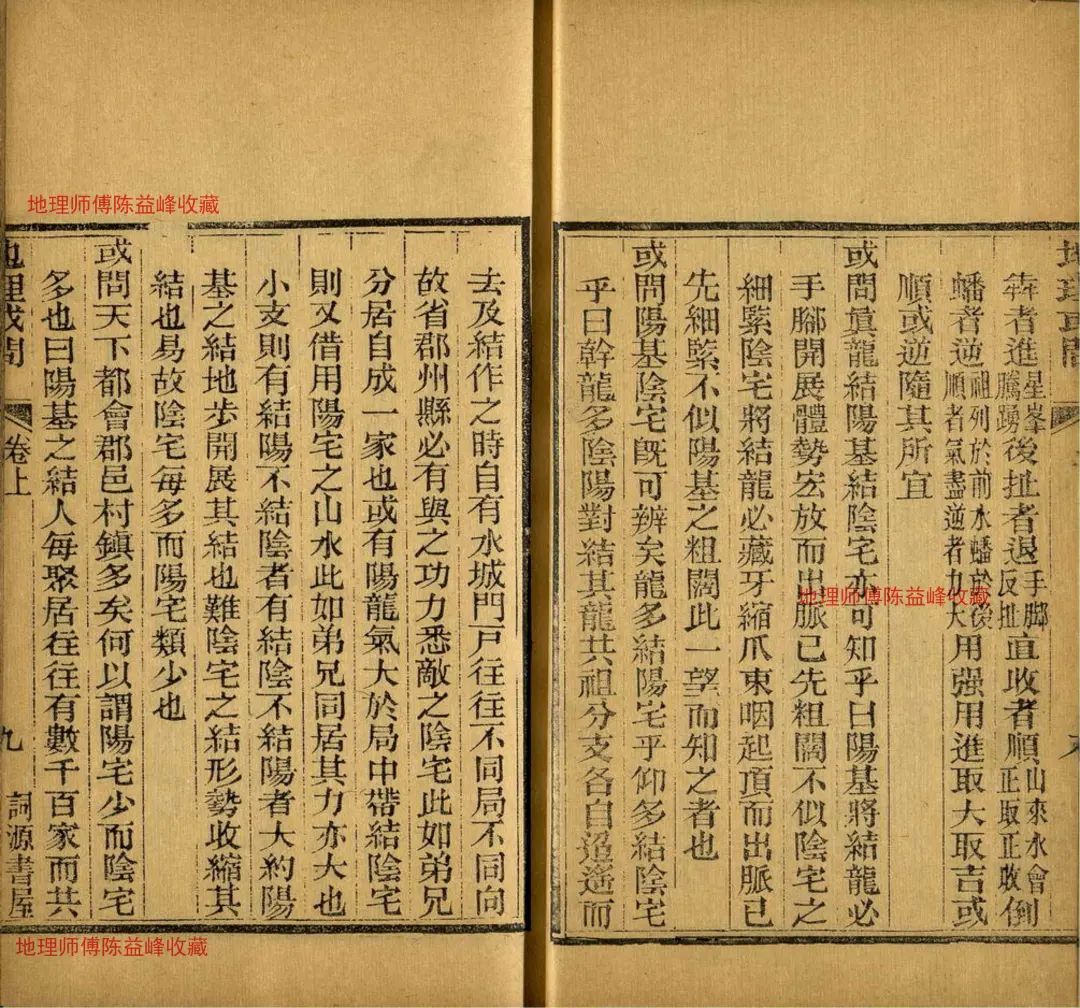 地理或問
犇者進星峯騰踴後扯者退手脚反扯直收者順山來水會正取正收倒
蟠者逆祖列於前水蟠於後順者氣盡逆者力大用强用進取大取吉或
順或逆隨其所宜
或問眞龍結陽基結陰宅亦可知乎曰陽基將結龍必
手腳開展體勢宏放而出脈已先粗闊不似陰宅之
細緊陰宅將結龍必藏牙縮爪束咽起頂而出脈已
先細緊不似陽基之粗闊此一望而知之者也
或問陽基陰宅旣可辨矣龍多結陽宅乎仰多結陰宅
乎曰幹龍多陰陽對結其龍共祖分支各自迢遙而
去及結作之時自有水城門戶往往不同局不同向
故省郡州縣必有與之功力悉敵之陰宅此如弟兄
分居自成一家也或有陽龍氣大於局中帶結陰宅
則又借用陽宅之山水此如弟兄同居其力亦大也
小支則有結陽不結陰者有結陰不結陽者大約陽
基之結地步開展其結也難陰宅之結形勢收縮其
結也易故陰宅每多而陽宅類少也
或問天下都會郡邑村鎮多矣何以謂陽宅少而陰宅
多也曰陽基之結人每聚居往往有數千百家而共
地理或問 卷上 九 詞源書屋
地理师傅陈益峰收藏
地理师傅陈益峰收藏
地理师傅陈益峰收藏